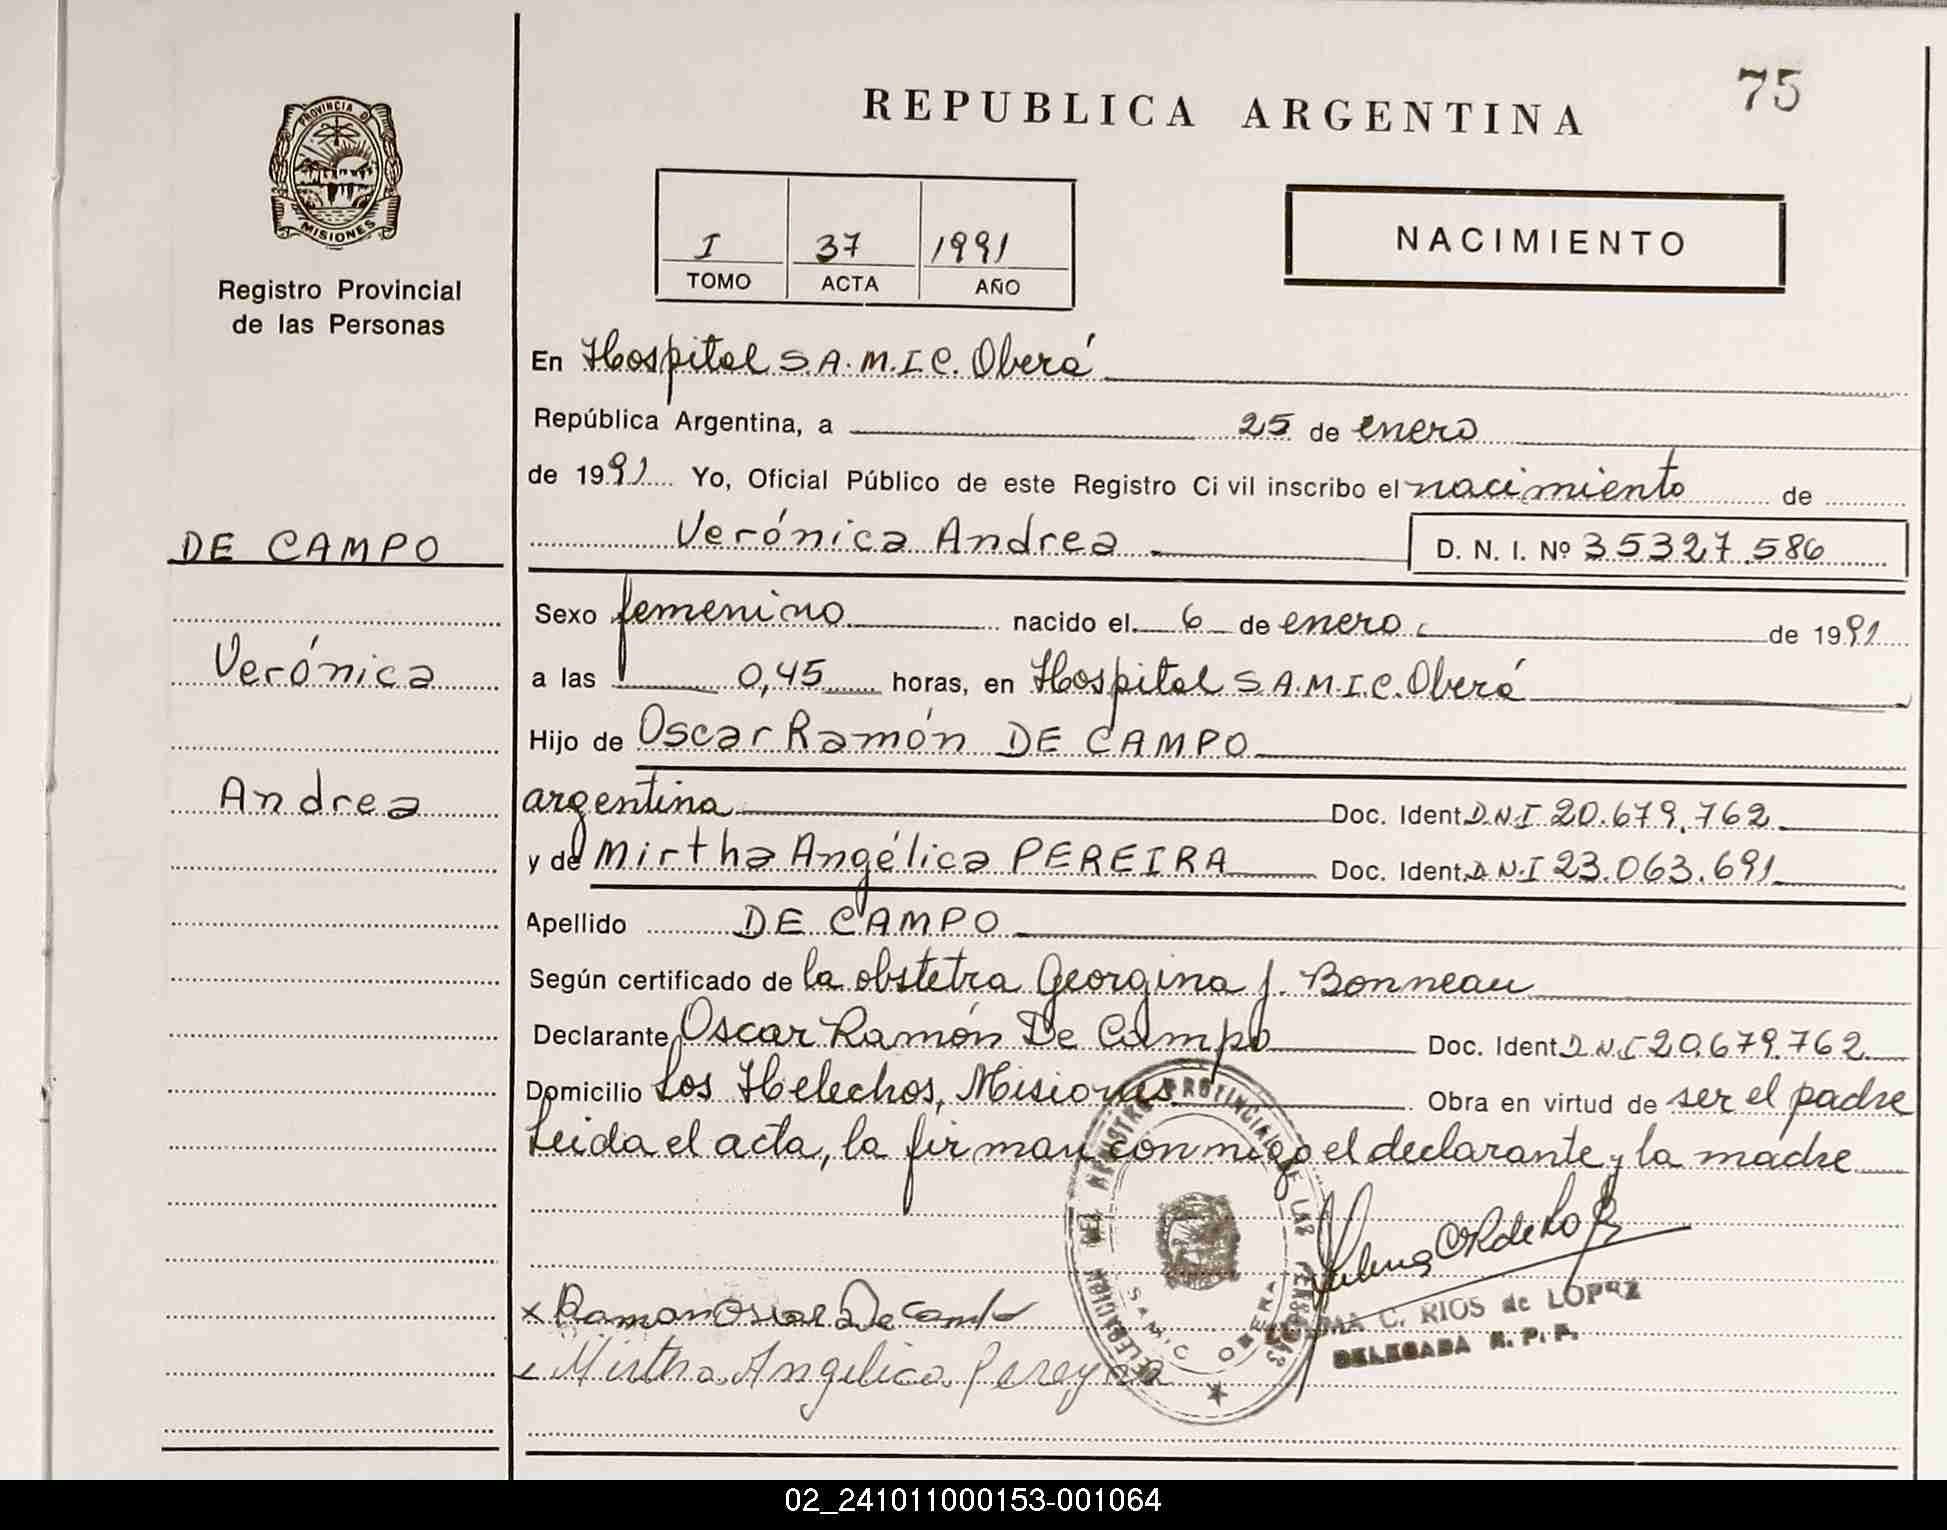 75
REPUBLICA ARGENTINA
PROVINCIA DE
MISIONES
Registro Provincial
de las Personas
I 37 1991
TOMO ACTA AÑO
NACIMIENTO
En Hospital S.A.M.I.C. Oberá
República Argentina, a 25 de enero
de 1991 Yo, Oficial Público de este Registro Civil inscribo el nacimiento de
DE CAMPO
Verónica Andrea D. N. I. Nº 35327.586
Sexo femenino nacido el 6 de enero de 1991
Verónica
a las 0,45 horas, en Hospital S.A.M.I.C. Oberá
Hijo de Oscar Ramón DE CAMPO
Andrea
argentina Doc. Ident. D.N.I 20.679.762
y de Mirtha Angélica PEREIRA Doc. Ident. D.N.I 23.063.691
Apellido DE CAMPO
Según certificado de la obstetra Georgina J. Bonneau
Declarante Oscar Ramón De Campo Doc. Ident D.N.I 20.679.762
Domicilio Los Helechos, Misiones Obra en virtud de ser el padre
Leida el acta, la firman conmigo el declarante y la madre
DELEGACION DEL REGISTRO PROVINCIAL DE LAS PERSONAS
SAMIC OBERA
x Ramon Oscar De Campo
C. RIOS de LOPEZ
DELEGADA R. P. P.
Mirtha Angelica Pereyra
02_241011000153-001064